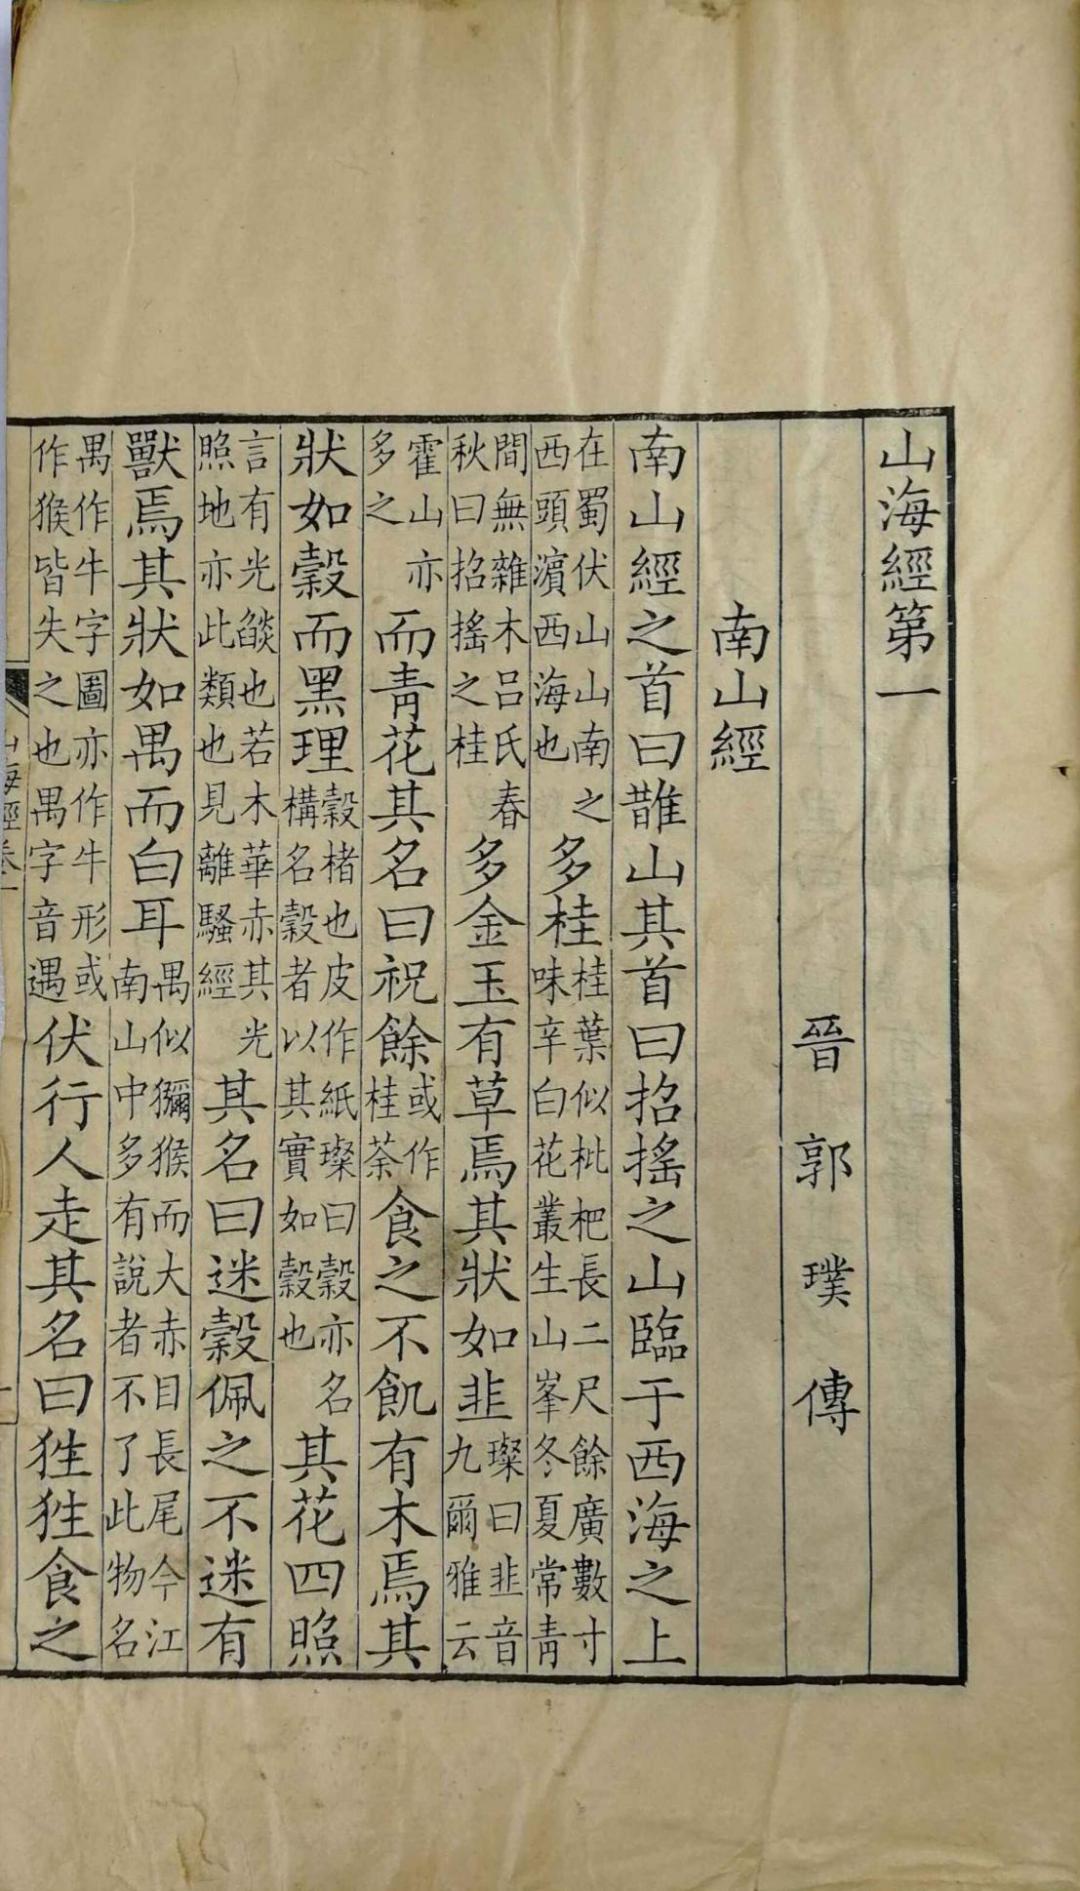 山海經第一
晉郭璞傳
南山經
南山經之首曰䧿山其首曰招搖之山臨于西海之上
在蜀伏山山南之西頭濱西海也多桂桂葉似枇杷長二尺餘廣數寸味辛白花叢生山峯冬夏常青
間無雜木呂氏春秋曰招搖之桂多金玉有草焉其狀如韭璨曰韭音九爾雅云
霍山亦多之而青花其名曰祝餘或作桂荼食之不飢有木焉其
狀如穀而黑理穀楮也皮作紙璨曰穀亦名構名穀者以其實如穀也其花四照
言有光燄也若木華赤其光照地亦此類也見離騷經其名曰迷穀佩之不迷有
獸焉其狀如禺而白耳禺似獼猴而大赤目長尾今江南山中多有說者不了此物名
禺作牛字圖亦作牛形或作猴皆失之也禺字音遇伏行人走其名曰狌狌食之
山海經卷一
一